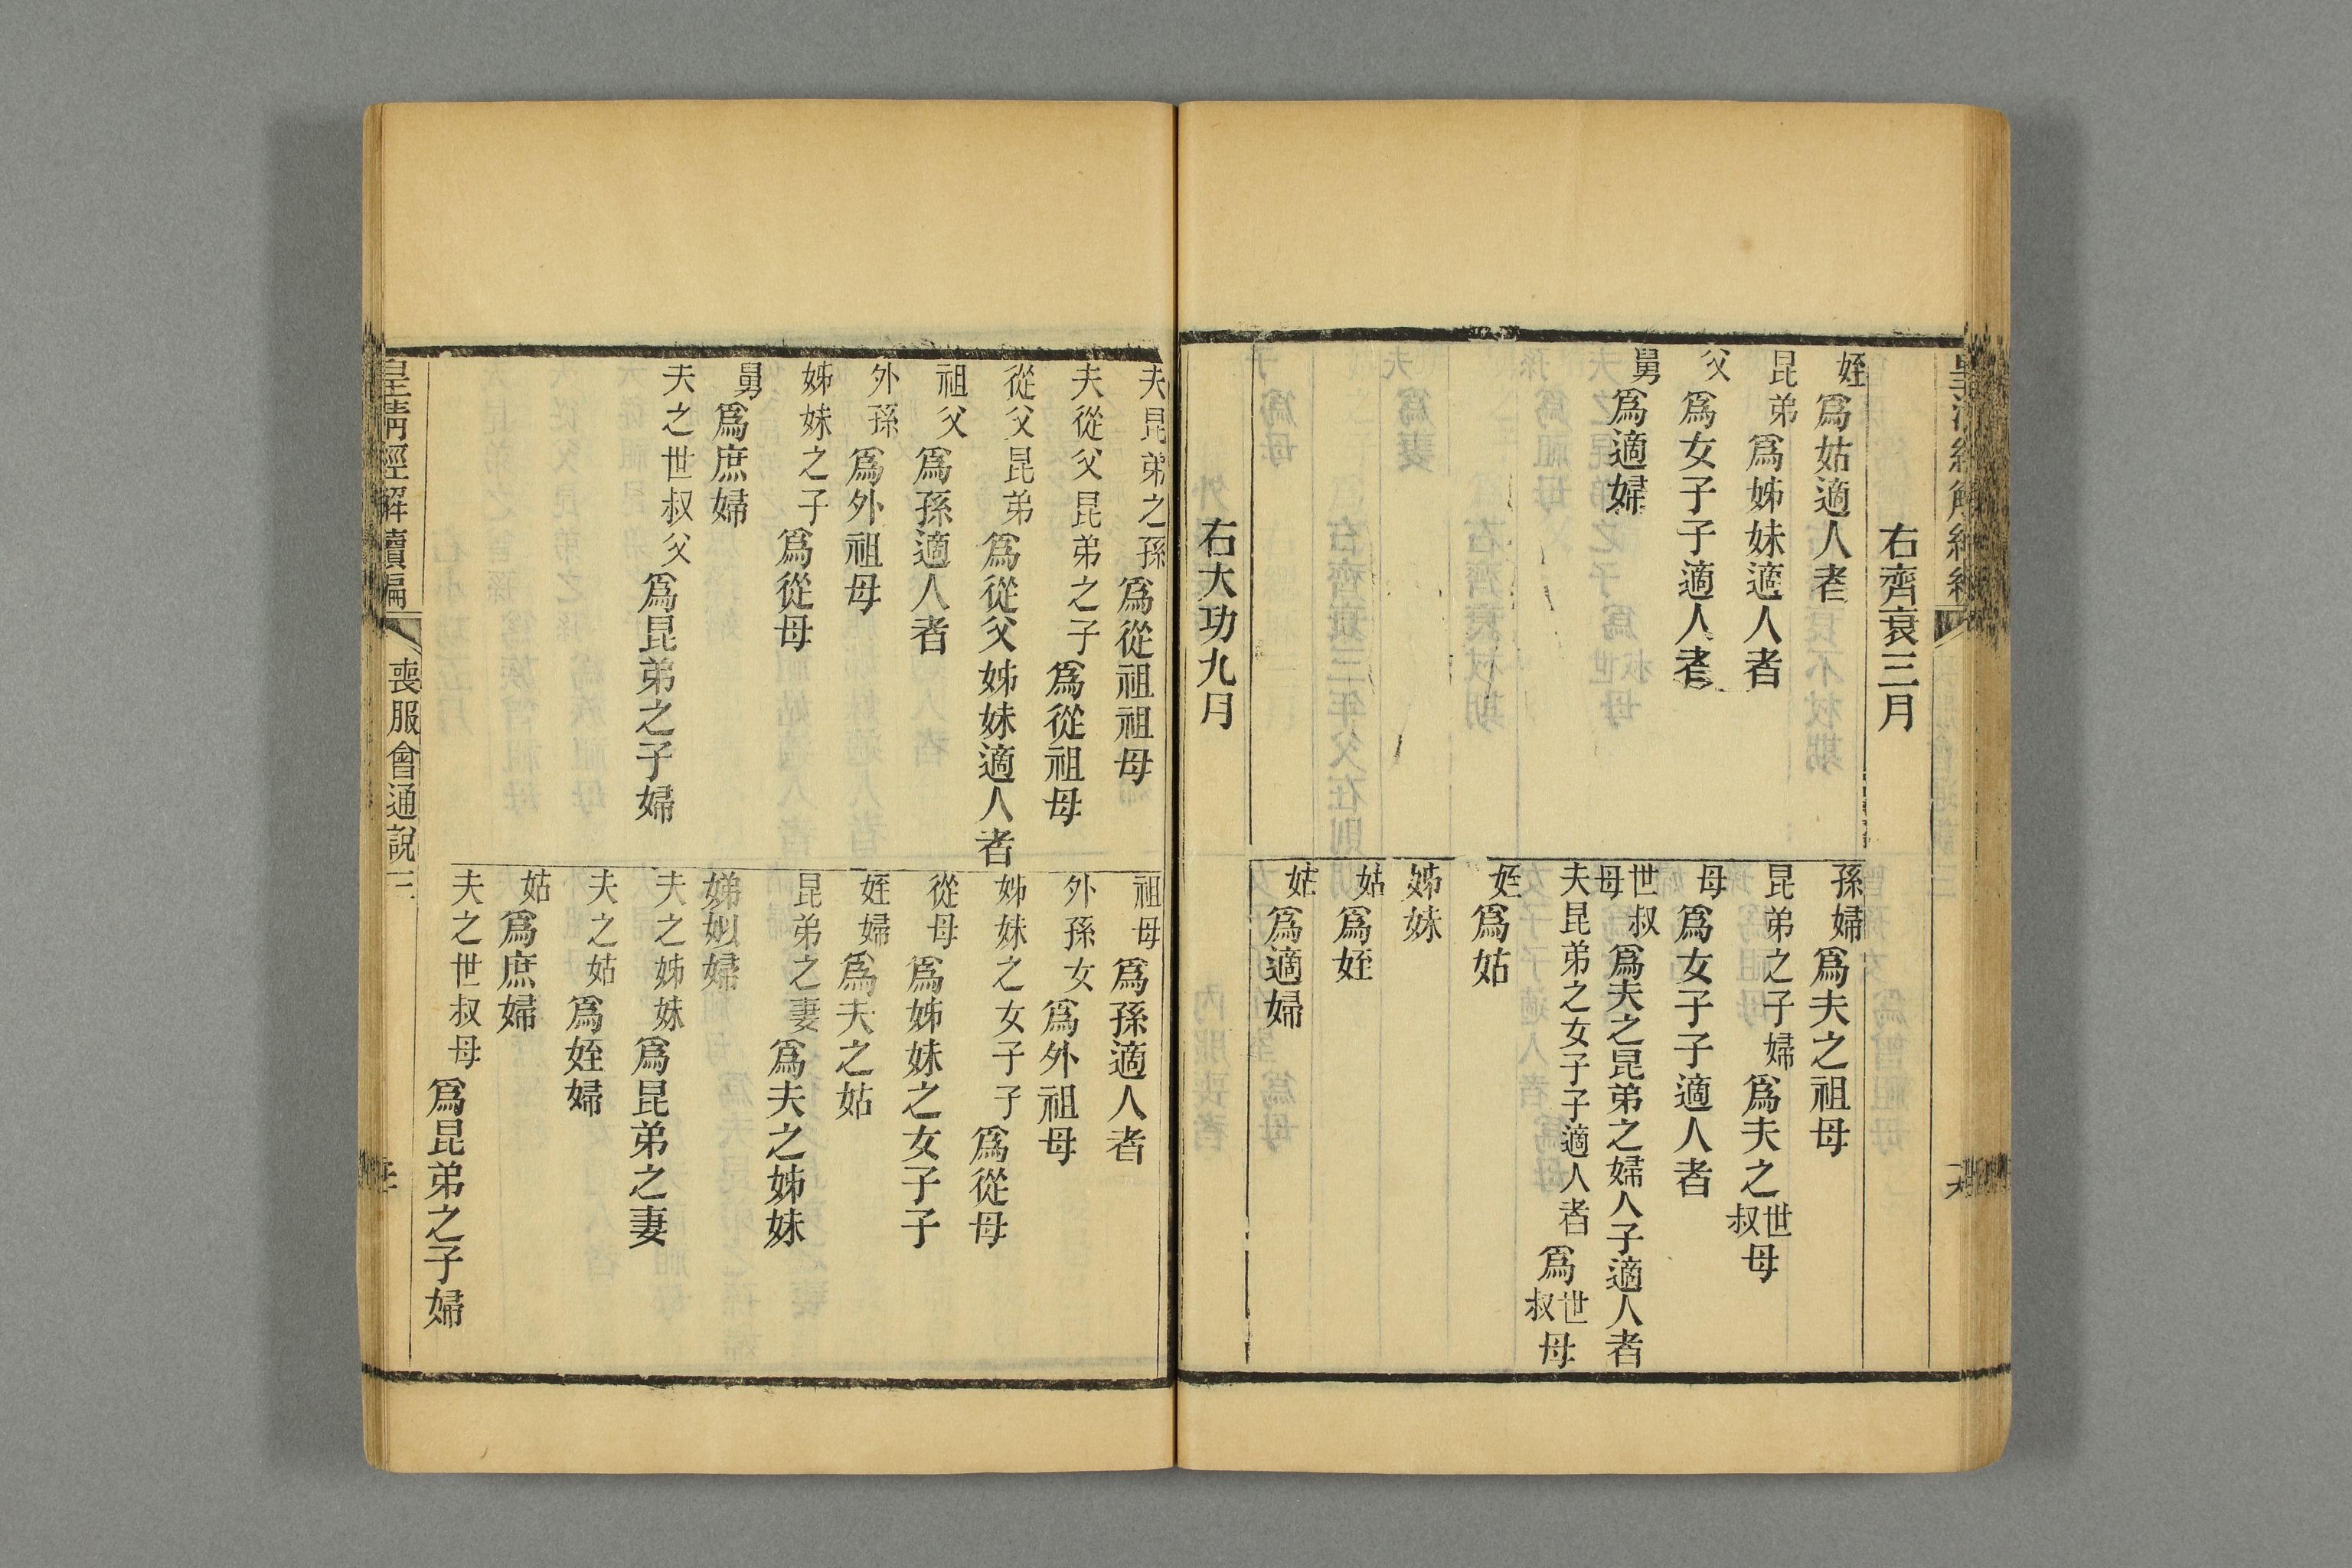 右齊衰三月
姪爲姑適人者
昆弟爲姊妹適人者
父爲女子子適人者
舅爲適婦
孫婦爲夫之祖母
昆弟之子婦爲夫之世叔母
母爲女子子適人者
世叔母爲夫之昆弟之婦人子適人者
夫昆弟之女子子適人者爲世叔母
姪爲姑
姊妹
姑爲姪
姑爲適婦
右大功九月
夫昆弟之孫爲從祖祖母
夫從父昆弟之子爲從祖母
從父昆弟爲從父姊妹適人者
祖父爲孫適人者
外孫爲外祖母
姊妹之子爲從母
舅爲庶婦
夫之世叔父爲昆弟之子婦
祖母爲孫適人者
外孫女爲外祖母
姊妹之女子子爲從母
從母爲姊妹之女子子
姪婦爲夫之姑
昆弟之妻爲夫之姊妹
娣姒婦
夫之姊妹爲昆弟之妻
夫之姑爲姪婦
姑爲庶婦
夫之世叔母爲昆弟之子婦
皇清經解續編
喪服會通說三